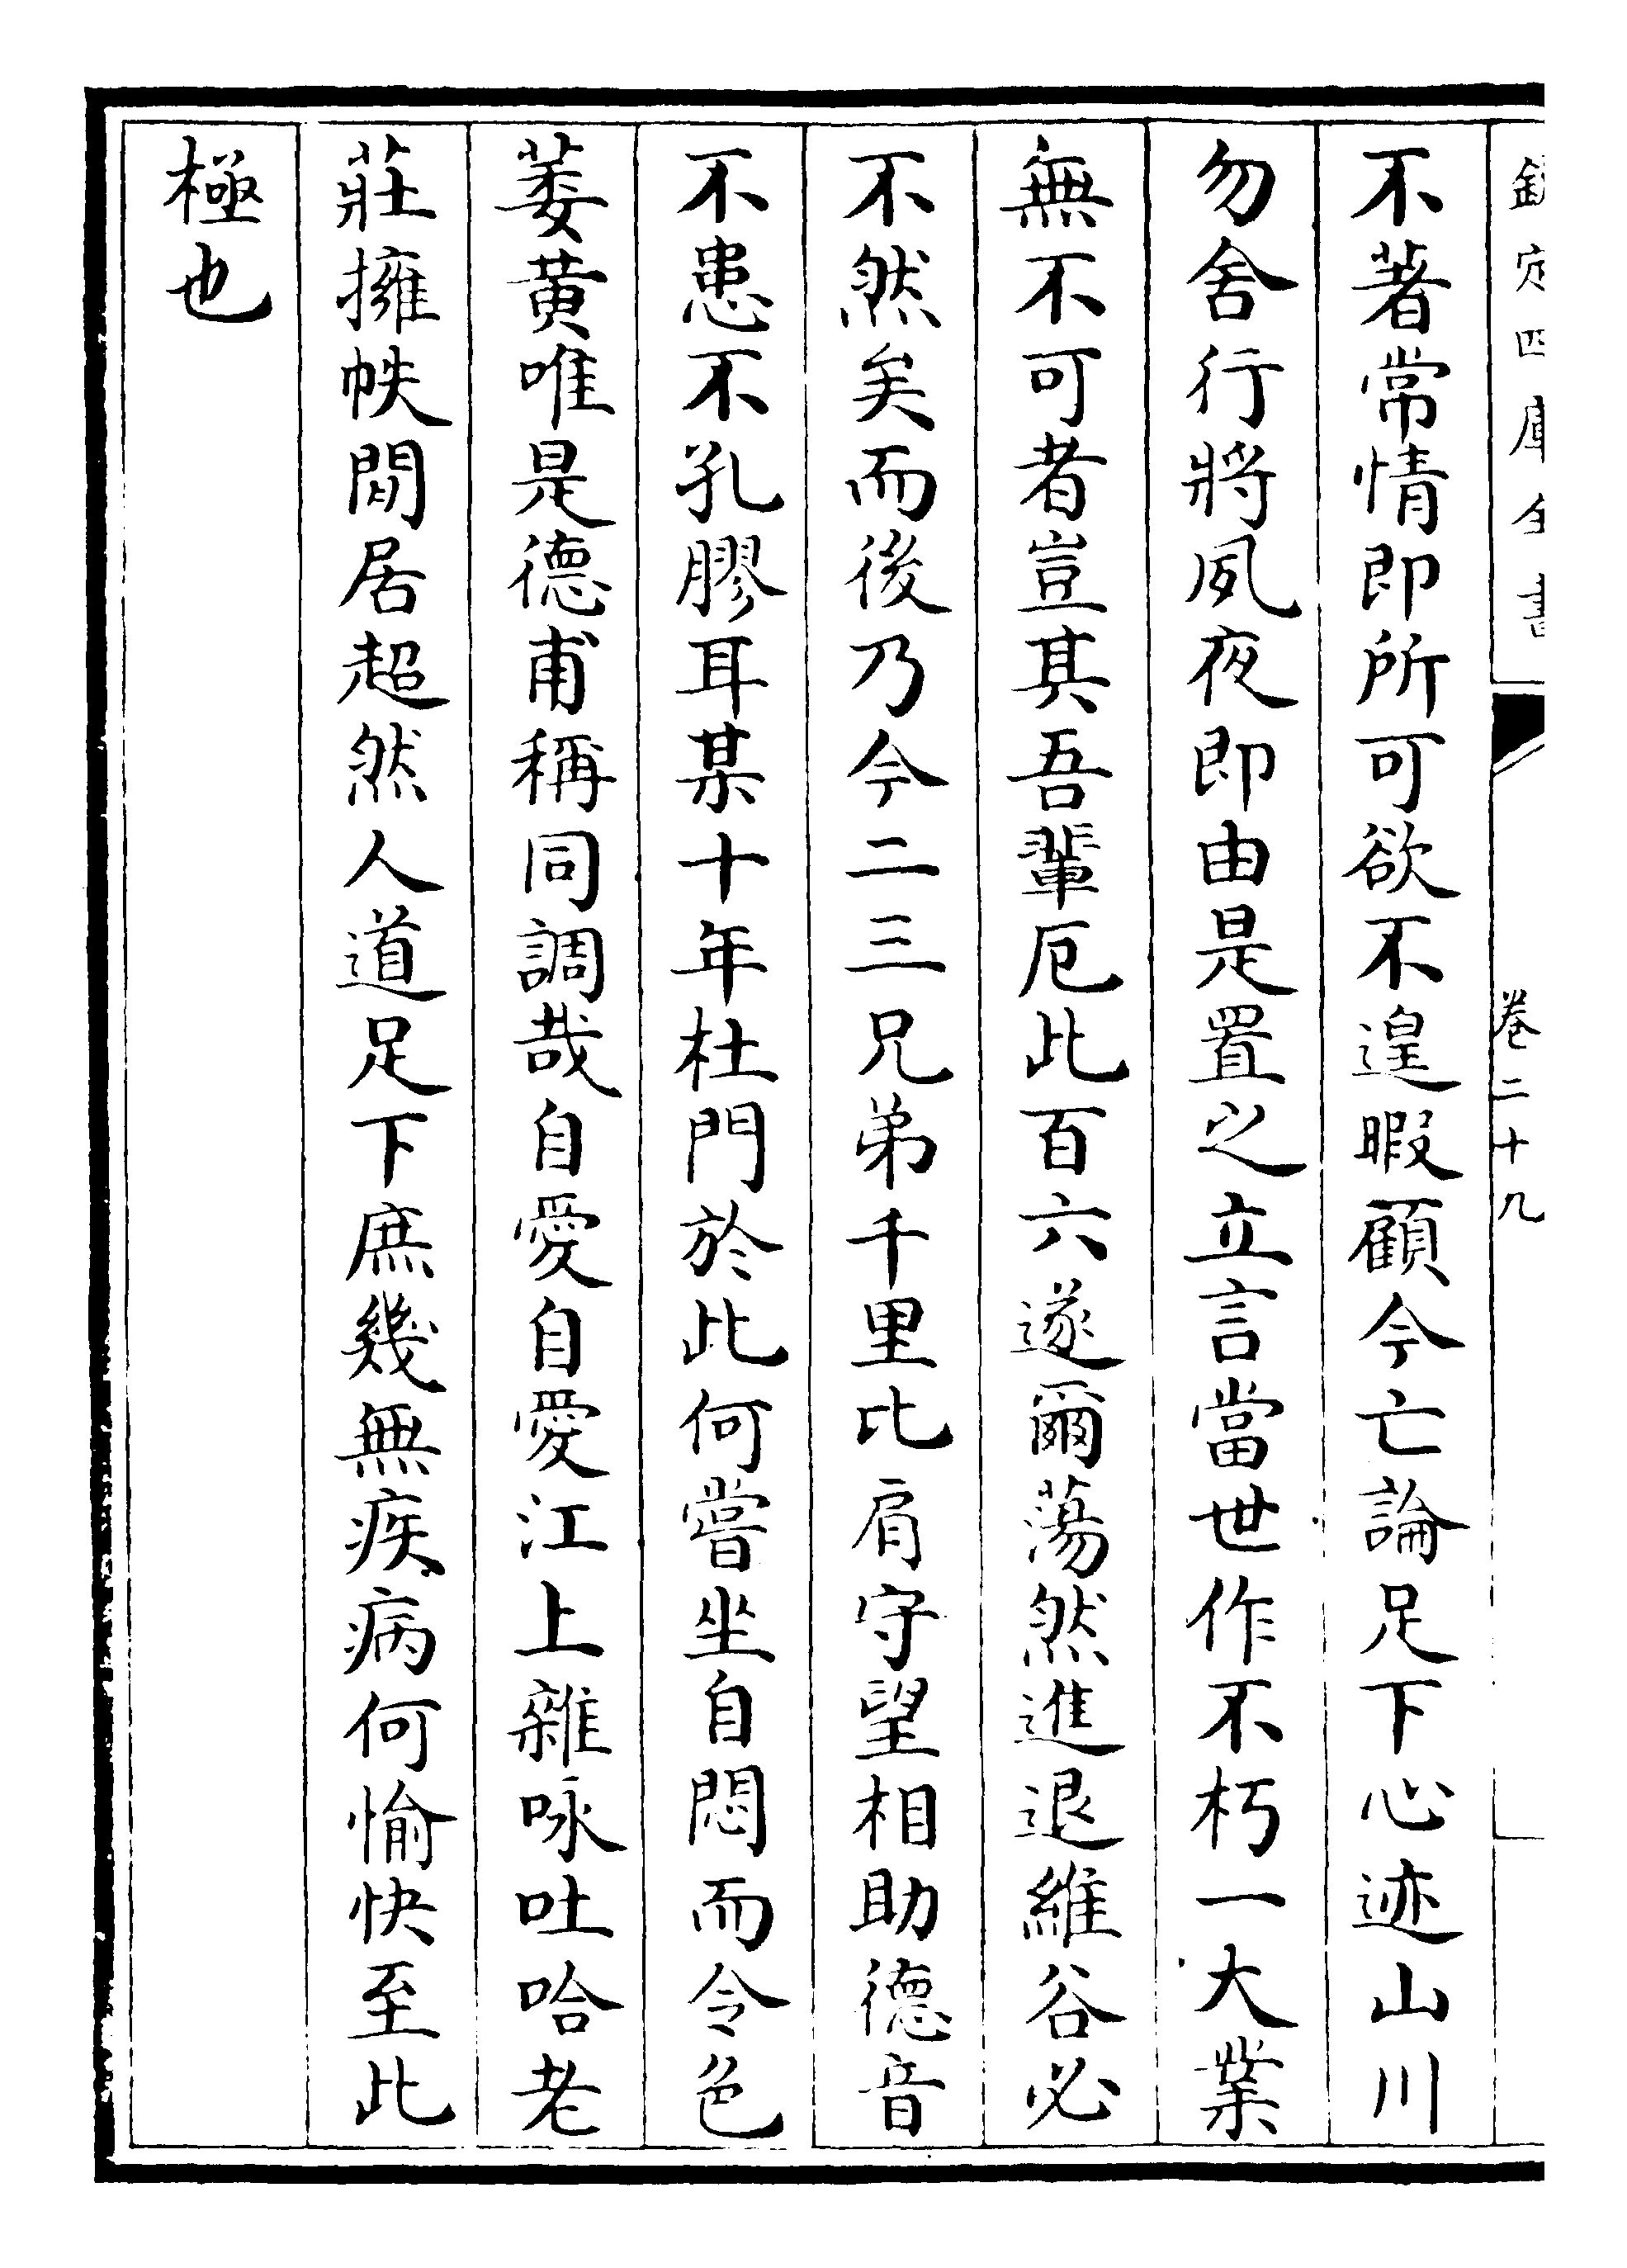 欽定四庫全書 卷二十九
不著常情即所可欲不遑暇顧今亡論足下心迹山川
勿舍行將夙夜即由是置之立言當世作不朽一大業
無不可者豈其吾輩厄此百六遂爾蕩然進退維谷必
不然矣而後乃今二三兄弟千里比肩守望相助德音
不患不孔膠耳某十年杜門於此何嘗坐自悶而令色
萎黄唯是德甫稱同調哉自愛自愛江上雜咏吐哈老
莊擁帙閒居超然人道足下庶幾無疾病何愉快至此
極也